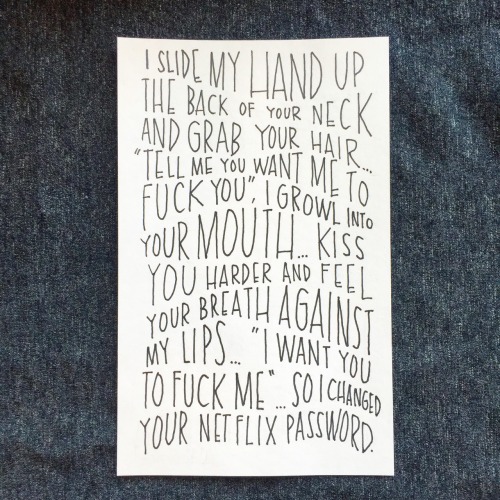 I SLIDE MY HAND UP
THE BACK OF YOUR NECK
AND GRAB YOUR HAIR...
"TELL ME YOU WANT ME TO
FUCK YOU", I GROWL INTO
YOUR MOUTH... KISS
YOU HARDER AND FEEL
YOUR BREATH AGAINST
MY LIPS... "I WANT YOU
TO FUCK ME"... SO I CHANGED
YOUR NETFLIX PASSWORD.